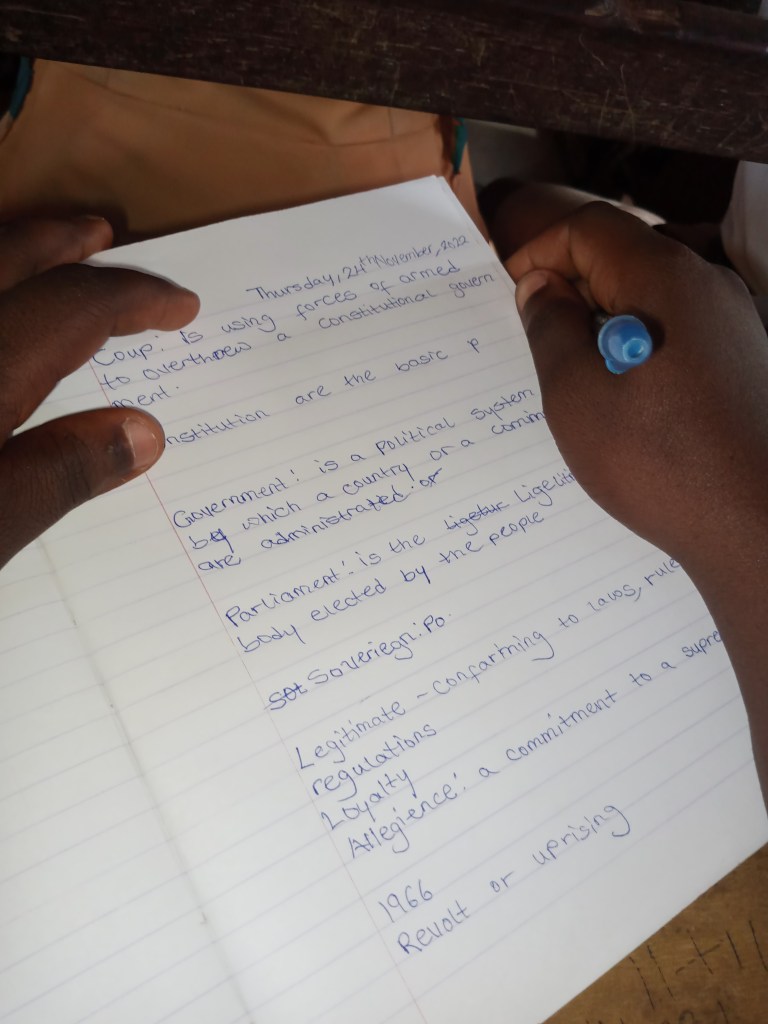 Thursday, 24th November, 2022
Coup: is using forces of armed
to overthrew a constitutional govern
ment.
nstitution are the basic p
Government: is a political system
by which a country or a comm
are administrated or
Parliament: is the ligetur Ligeliti
body elected by the people
Sot Soveriegn: Po.
Legitimate - confarming to laws, rule
regulations
Loyalty
Allegience: a commitment to a supre
1966
Revolt or uprising
11+11